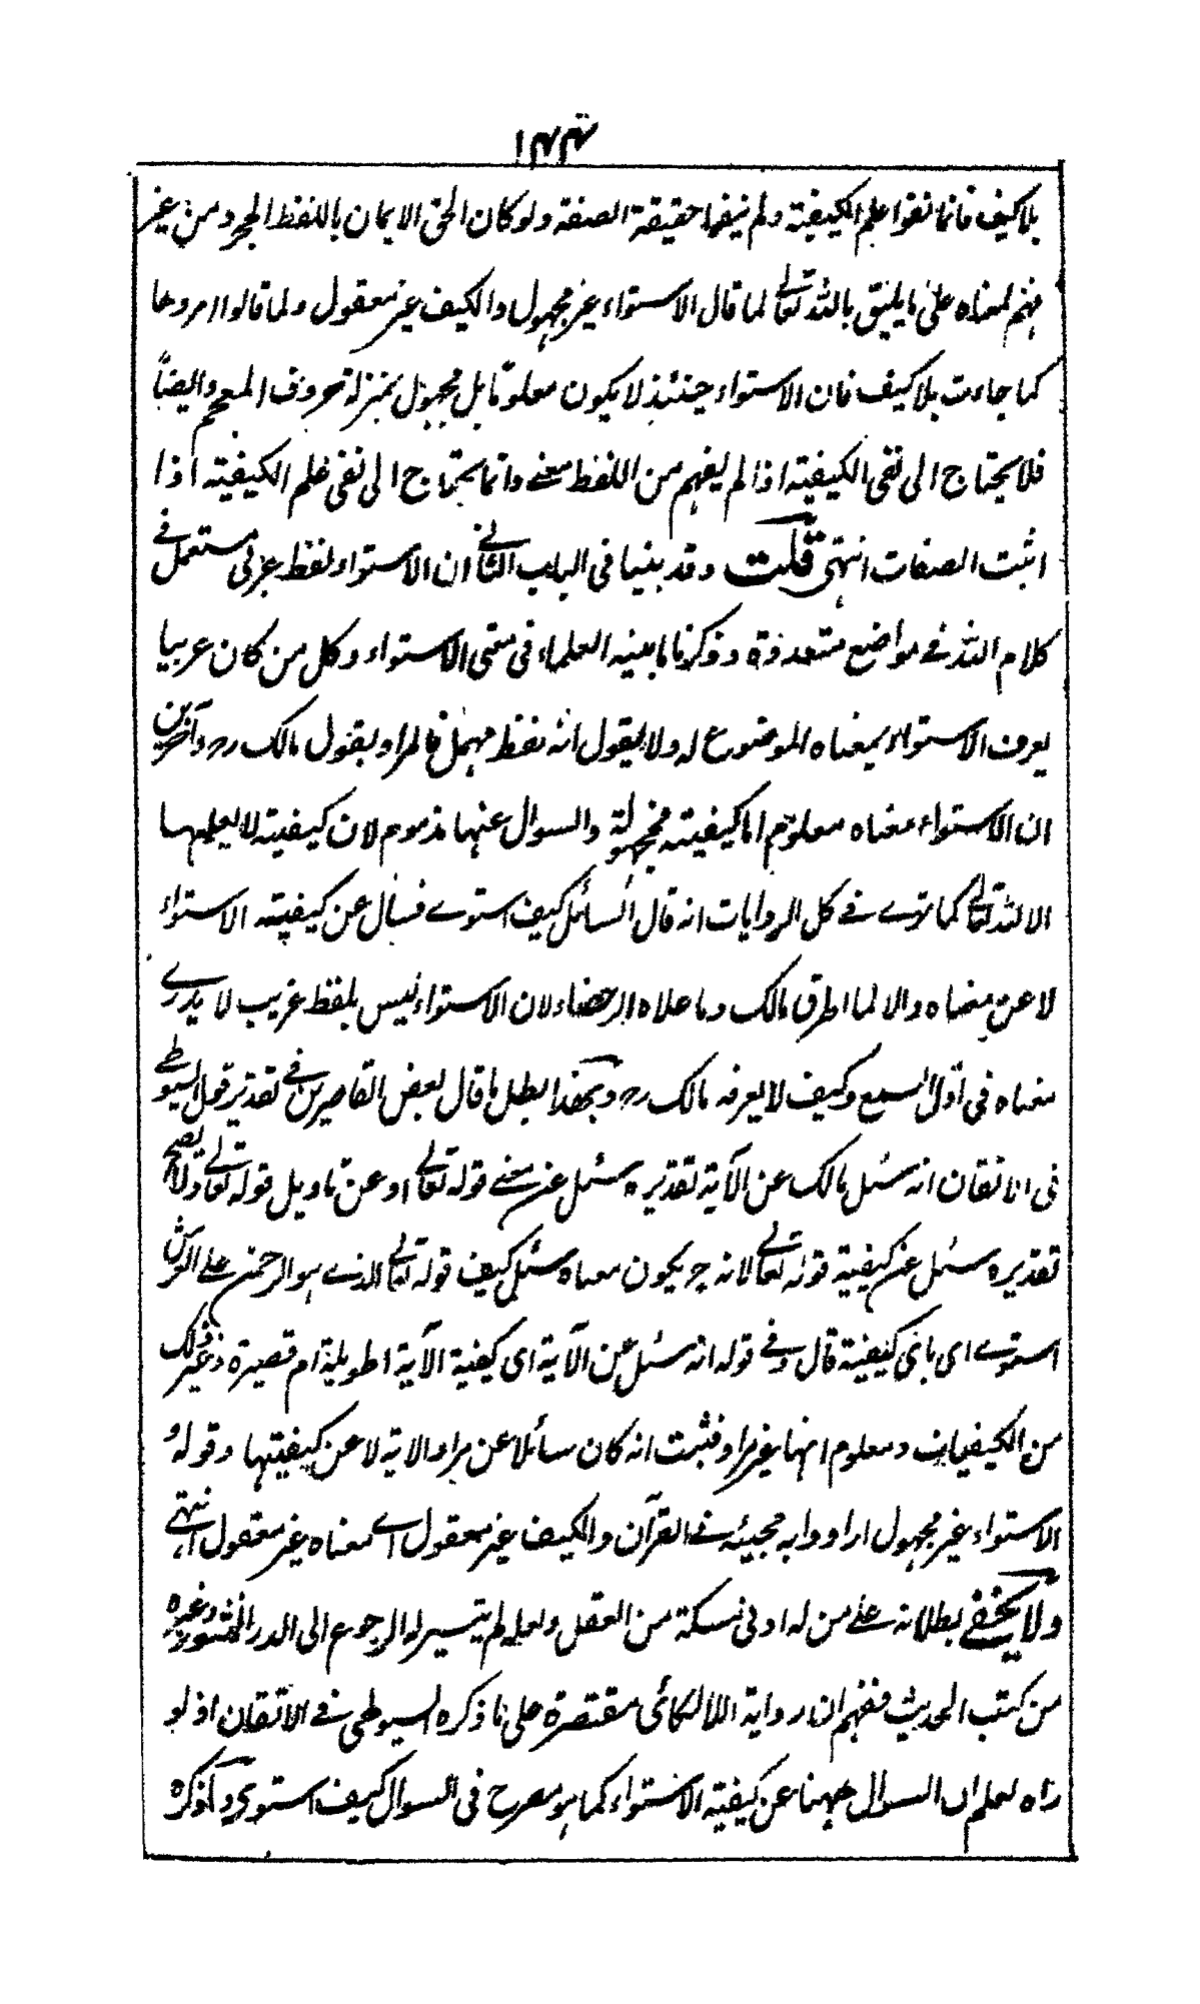 ١٤٣
بلاكيف فانما نفوا علم الكيفية ولم ينفوا حقيقة الصفة ولو كان الحق الايمان باللفظ المجرد من غير
فهم لمعناه على ما يليق بالله تعالى لما قال الاستواء غير مجهول والكيف غير معقول ولما قالوا امروها
كما جاءت بلا كيف فان الاستواء حينئذ لا يكون معلوما بل مجهول بمنزلة حروف المعجم وايضاً
فلا يحتاج الى نفى الكيفية اذا لم يفهم من اللفظ معنے وانما يحتاج الى نفى علم الكيفية اذا
اثبت الصفات انتهى قلت وقد بينا فى الباب الثانے ان الاستواء لفظ عربى مستعمل فے
كلام الله فے مواضع متعددة وذكرنا ما بينه العلماء فى معنى الاستواء وكل من كان عربيا
يعرف الاستواء بمعناه الموضوع له ولا يقول انه لفظ مهمل فالمراد بقول مالك رح وآخرين
ان الاستواء معناه معلوم اما كيفيته مجهولة والسوال عنها مذموم لان كيفيته لا يعلمها
الا الله تعالى كما ترے فے كل الروايات انه قال السائل كيف استوے فسأل عن كيفيته الاستواء
لا عن معناه والا لما اطرق مالك وما علاه الرحضاء لان الاستواء ليس بلفظ غريب لا يدرے
معناه فى اول السمع وكيف لا يعرفه مالك رح وبهذا بطل ما قال بعض القاصرين فے تقدير قول السيوطے
فى الاتقان انه سئل مالك عن الآية تقديره سئل عن معنے قوله تعالے او عن تاويل قوله تعالے ولا يصح
تقديره سئل عن كيفية قوله تعالے لانه ح يكون معناه سئل كيف قوله تعالے الذے هو الرحمن علے العرش
استوے اى باى كيفية قال وفے قوله انه سئل عن الآية اى كيفية الآية اطويلة ام قصيرة وغير ذلك
من الكيفيات ومعلوم انها غير مراد فثبت انه كان سائلا عن مراد الاية لا عن كيفيتها وقوله و
الاستواء غير مجهول اراد وا به مجيئه فے القرآن والكيف غير معقول اے معناه غير معقول انتهے
ولا يخفے بطلانه علے من له ادنى مسكة من العقل ولعله لم يتيسر له الرجوع الى الدر المنثور وغيره
من كتب الحديث ففهم ان رواية اللالكائى مقتصرة على ما ذكره السيوطى فے الاتقان اذ لو
راه لعلم ان السوال ههنا عن كيفية الاستواء كما هو مصرح فى السوال كيف استوى وما ذكره